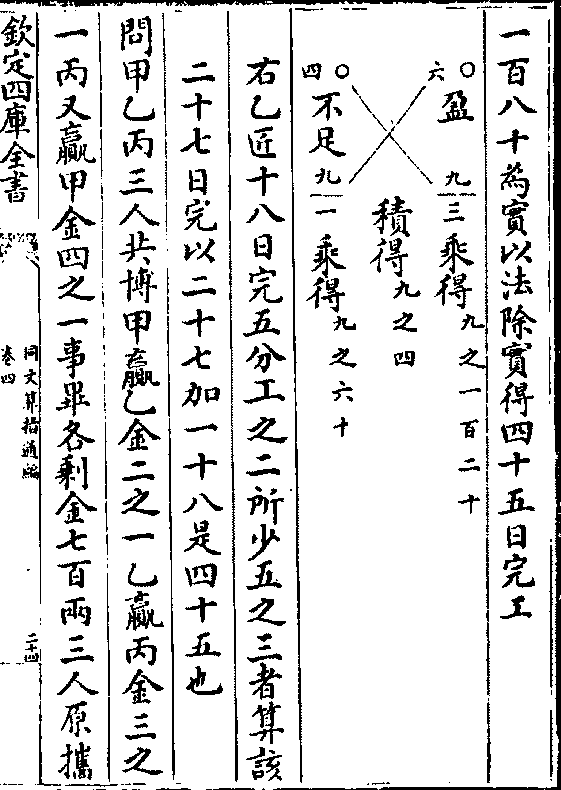 一百八十為實以法除實得四十五日完工
六〇 盈 九 三乘得九之一百二十
積得九之四
四〇 不足 九 一乘得九之六十
右乙匠十八日完五分工之二所少五之三者算該
二十七日完以二十七加一十八是四十五也
問甲乙丙三人共博甲贏乙金二之一乙贏丙金三之
一丙又贏甲金四之一事畢各剩金七百兩三人原攜
欽定四庫全書
同文算指通編
卷四
二十四